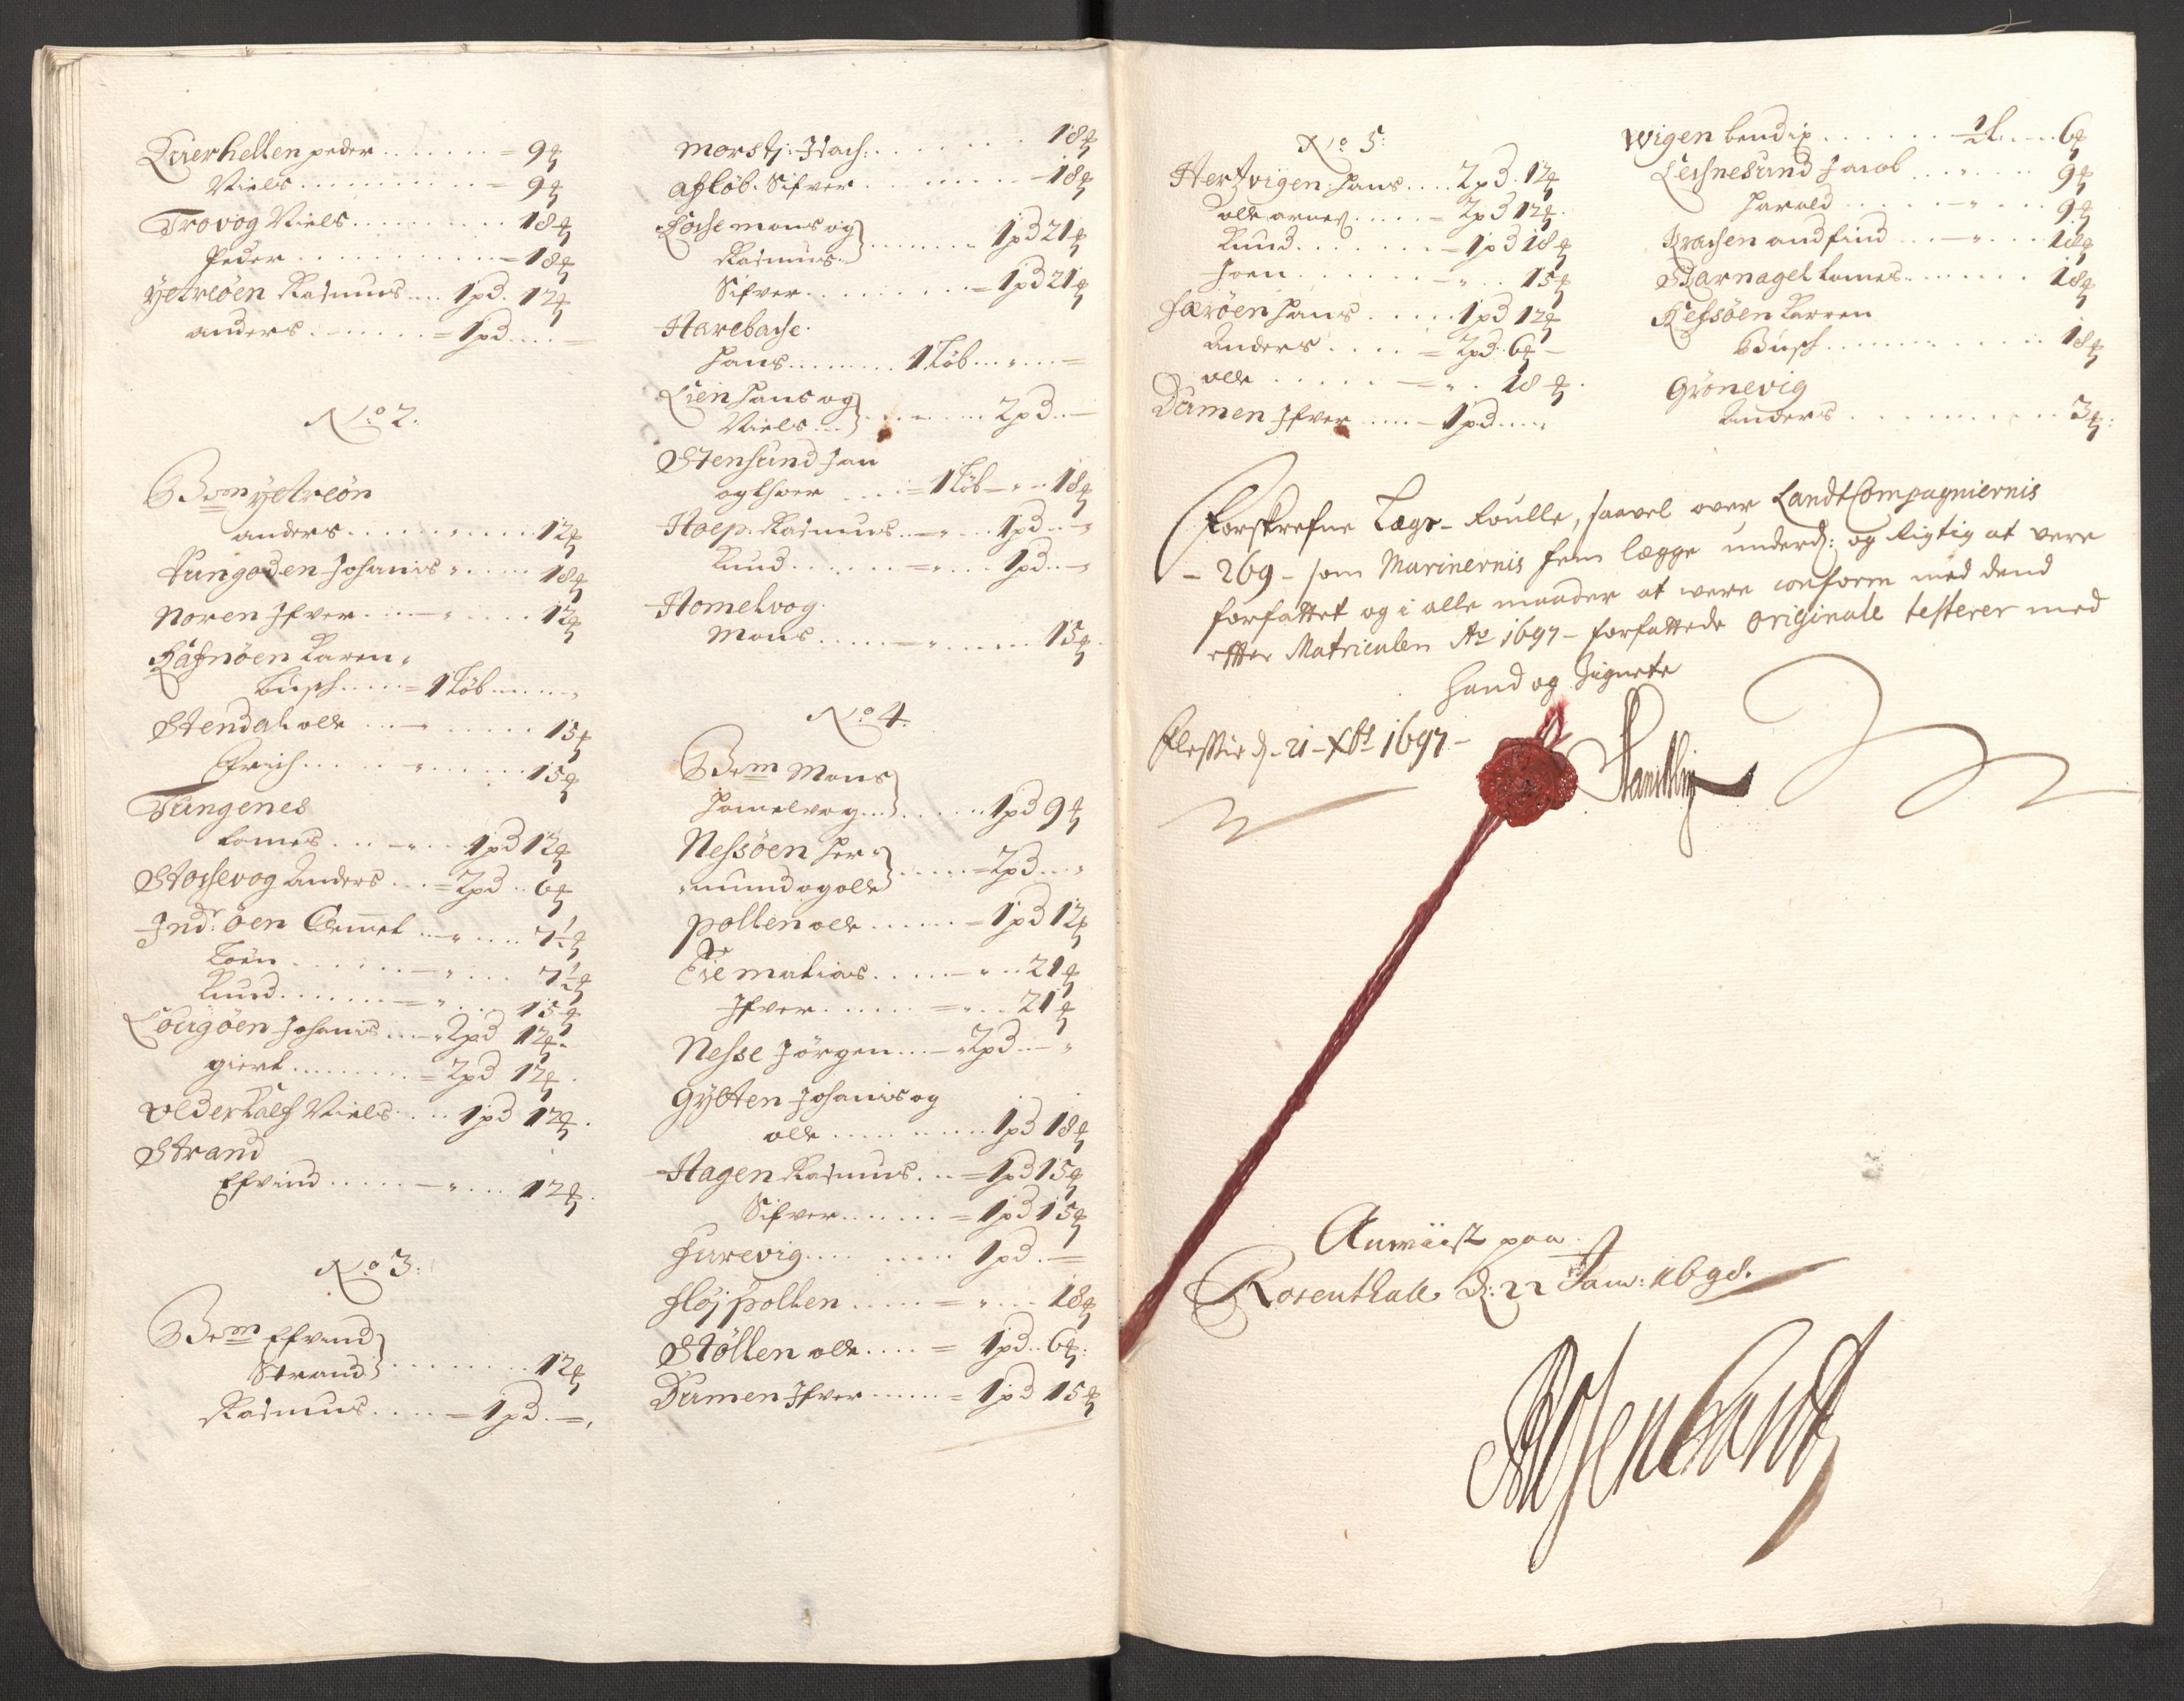 Qverhellen peder ....... = 9 ℔
Niels ............ = 9 ℔
Trovog Niels .......... 18 ℔
Peder ............ = 18 ℔
Ÿetreöen Rasmus .... 1 pd. 12 ℔
anders ....... = 1 pd ....
No 2.
Bem ÿetreön
anders ............ 12 ℔
Tungoden Johanis ....... 18 ℔
Noren Ifver ......... 12 ℔
Räfnöen Karen
Busch ..... = 1 Löb ......
Stendal olle .......... 15 ℔
Erich ............. 15 ℔
Tungenes
Lames ....... 1 pd 12 ℔
Stochevog Anders ... = 2 pd .. 6 ℔
Indr: öen Clemet ....... 7½ ℔
Loen ............ 7½ ℔
Knud ......... = .... 15 ℔
Lougöen Johanis .... 2 pd 12 ℔
giert ......... = 2 pd 12 ℔
Olderkalf Niels .... 1 pd 12 ℔
Strand
Efvind ........... 12 ℔
No 3:
Bem Efvind
Strand } ......... 12 ℔
Rasmus ...... = 1 pd. =
Morstj: Isach: ......... 18 ℔
afløb. Sifver .......... 18 ℔
Losse mons og
Rasmus } ........ 1 pd 21 ℔
Sifver ......... = 1 pd 21 ℔
Harebache.
Hans ......... 1 Löb ......
Lien Hans og
Niels ... } ......... 2 pd ..
Stensund Jan
og thoer .... = 1 Löb ... 18 ℔
Hoep. Rasmus ....... 1 pd ..
Knud ......... = .... 1 pd ..
Homelvog.
Mons ............. 15 ℔.
No 4.
Bem Mons
Homelvog ... } ...... 1 pd 9 ℔
Nessöen Her-
mund og olle } ..... = 2 pd ...
pollen olle ...... = 1 pd 12 ℔
Eie Matias ........ 21 ℔
Ifver ...... = ... 21 ℔
Nesse Jörgen .... 2 pd ...
Gÿlten Johanis og
olle ......... 1 pd 18 ℔
Hagen Rasmus ... = 1 pd 15 ℔
Sifver ...... = 1 pd 15 ℔
Furevig ......... 1 pd. =
fløjpollen ..... = .... 18 ℔
Stöllen olle .... = 1 pd .. 6 ℔:
Dumen Ifver ...... = 1 pd 15 ℔
No 5:
Hertzvigen: Hans .... 2 pd. 12 ℔
olle arnes ..... = 2 pd 12 ℔.
Knud ....... = 1 pd 18 ℔
Joen ........ = .. 15 ℔
Færöen Hans ..... 1 pd 12 ℔
Anders .... = 2 pd. 6 ℔ -
olle ...... = .. 18 ℔.
Dumen Ifver ..... 1 pd .....
Wigen Bendix ....... ½ L .... 6 ℔
Leihnesund Jacob ........ 9 ℔
Harald .......... 9 ℔
Krachen andfind ....... 18 ℔
Barnagel Lames ........ 18 ℔
Refsöen Karren
Busch ............. 18 ℔
Grönevig
Anders ......... 3 ℔:
Forskrefne Legs-Roulle, saavel over LandtCompagniernis
- 269 - som Marinernis fem lægge underd: og Rigtig at vere
forfattet og i alle maader at vere conform med dend
effter Matriculen Ao 1697 - forfattede Originale testerer med
Hand og Zignete
d - 21 - Xbr 1697 -
Anwiist paa
Rosenthall d: 22 Janu: 1698.